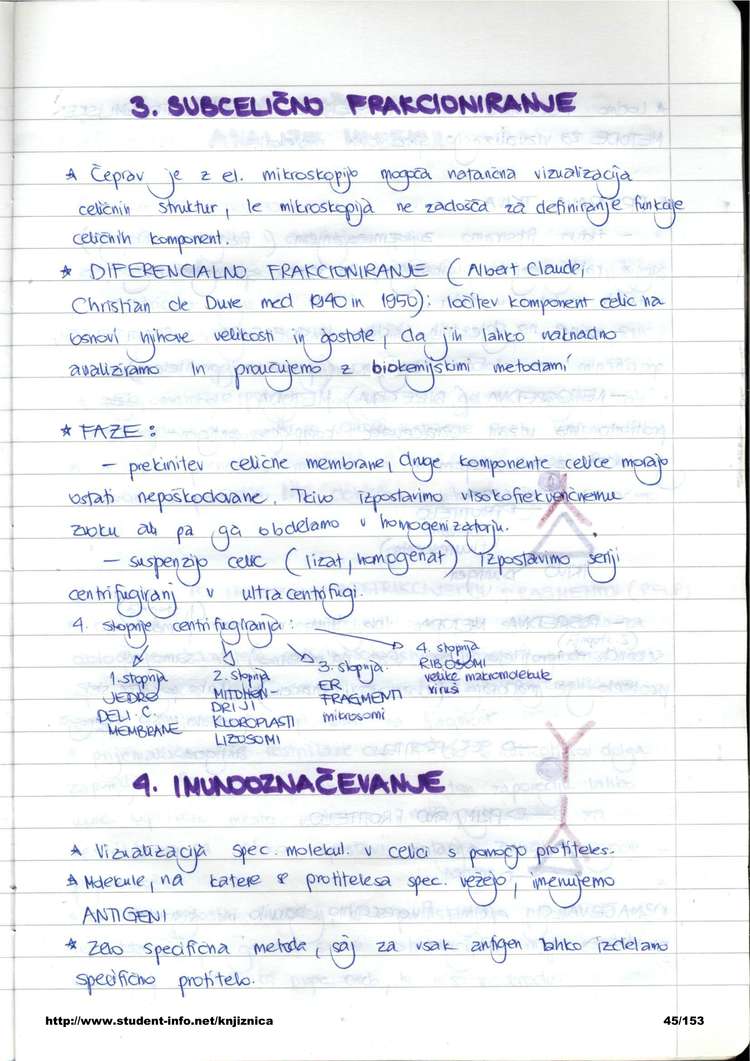 3. SUBCELIČNO FRAKCIONIRANJE
★ Čeprav je z el. mikroskopijo mogoča natančna vizualizacija
celičnih struktur, le mikroskopija ne zadošča za definiranje funkcije
celičnih komponent.
★ DIFERENCIALNO FRAKCIONIRANJE (Albert Claude,
Christian de Duve med 1940 in 1950): ločitev komponent celic na
osnovi njihove velikosti in gostote, da jih lahko naknadno
analiziramo in proučujemo z biokemijskimi metodami
★ FAZE:
– prekinitev celične membrane, druge komponente celice morajo
ostati nepoškodovane. Tkivo izpostavimo visokofrekvenčnemu
zvoku ali pa ga obdelamo v homogenizatorju.
– suspenzijo celic (lizat, homogenat) izpostavimo seriji
centrifugiranj v ultracentrifugi.
4. stopnje centrifugiranja:
1. stopnja
JEDRO
DELI C.
MEMBRANE
2. stopnja
MITOHON-
DRIJI
KLOROPLASTI
LIZOSOMI
3. stopnja
ER
FRAGMENTI
mikrosomi
4. stopnja
RIBOSOMI
velike makromolekule
virusi
4. IMUNOOZNAČEVANJE
★ Vizualizacija spec. molekul. v celici s pomočjo protiteles.
★ Molekule, na katere protitelesa spec. vežejo, imenujemo
ANTIGENI
★ Zelo specifična metoda, saj za vsak antigen lahko izdelamo
specifično protitelo.
http://www.student-info.net/knjiznica
45/153